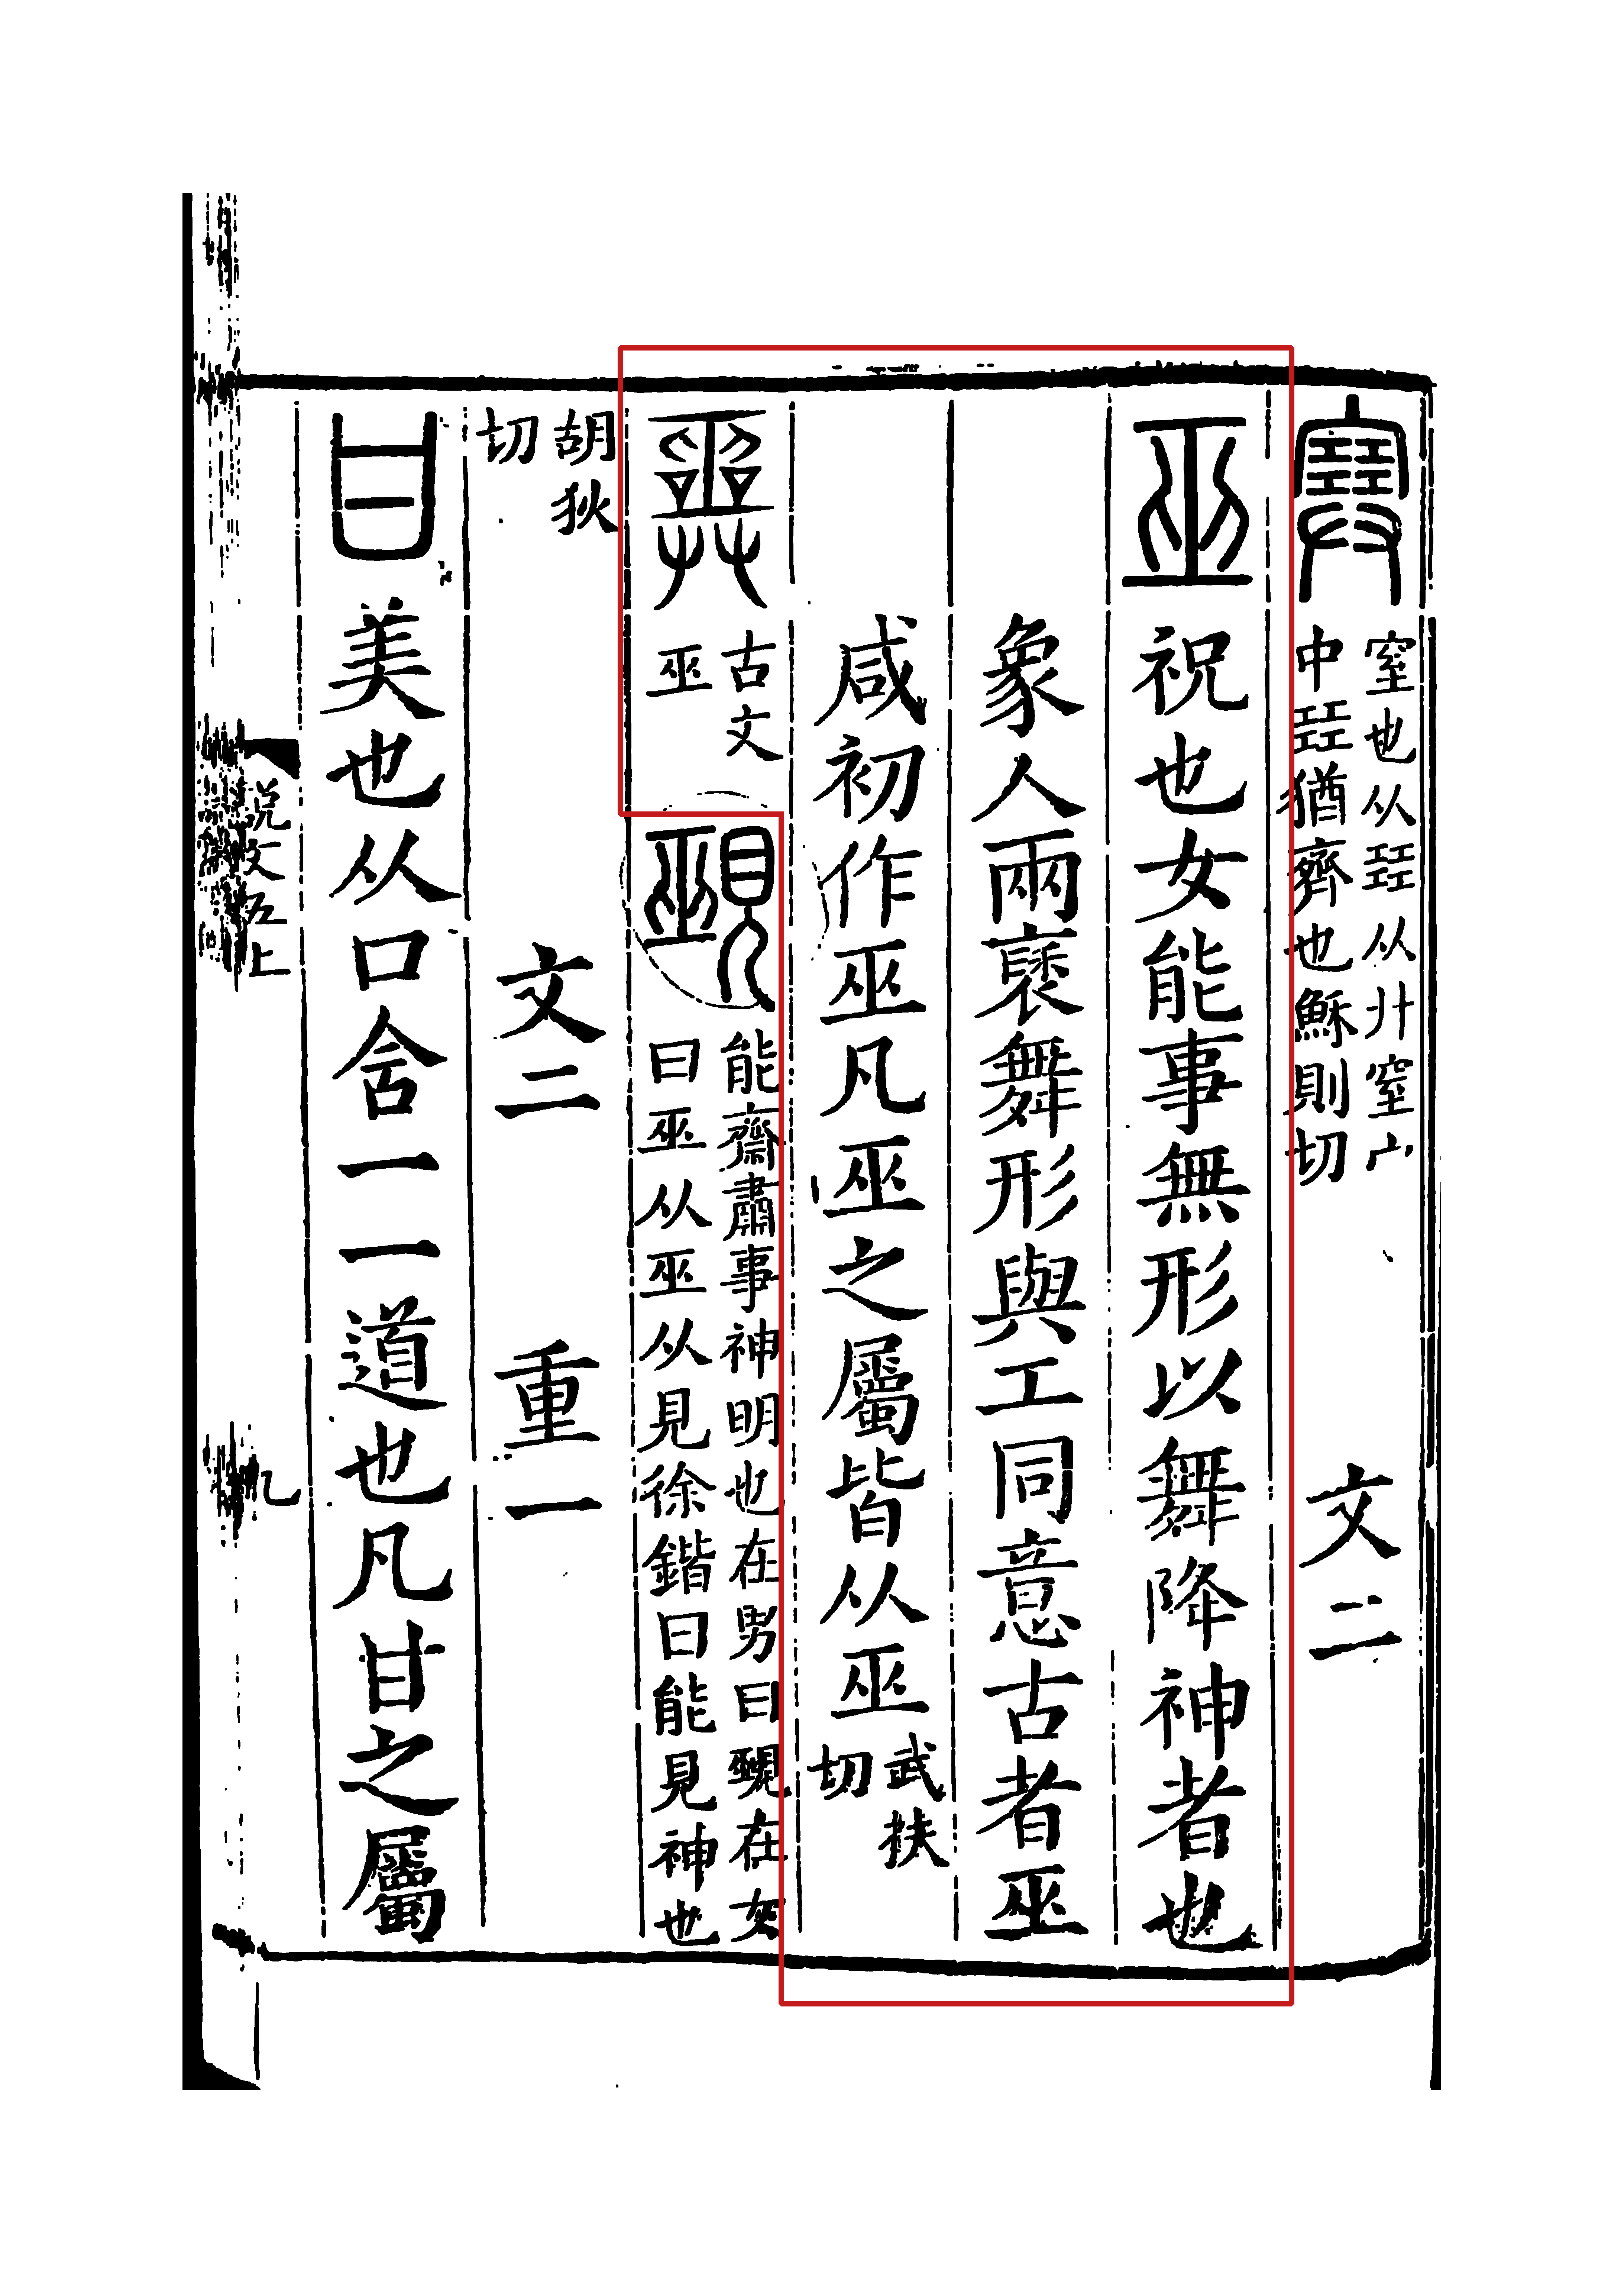 𡫳窒也从㠭从廾窒宀
中㠭猶齊也穌則切
文二
巫祝也女能事無形以舞降神者也
象人兩褎舞形與工同意古者巫
咸初作巫凡巫之屬皆从巫武扶
切
𢍮古文
巫
覡能齋肅事神明也在男曰覡在女
曰巫从巫从見徐鍇曰能見神也
胡狄
切
文二 重一
甘美也从口含一一道也凡甘之屬
説文五上
九